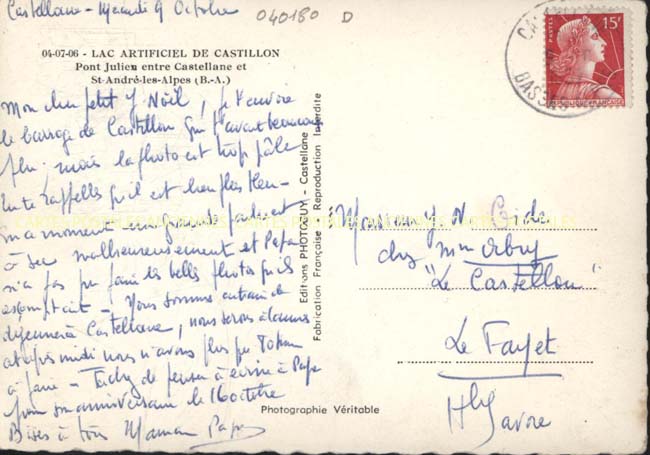 Castellane - Mercredi 9 Octobre
040180 D
04-07-06 - LAC ARTIFICIEL DE CASTILLON
Pont Julien entre Castellane et
St-André-les-Alpes (B.-A.)
Mon cher petit J. Noël, je t'envoie
le barrage de Castillon qui t'avait beaucoup
plu, mais la photo est trop pâle
tu te rappelles qu'il est bien plus bleu -
en ce moment une grande partie est
à sec malheureusement et Papa
n'a pas pu faire les belles photos qu'il
escomptait - Nous sommes en train de
déjeuner à Castellane, nous serons à
après midi nous n'avons plus que 70 km
à faire - Tâchez de penser à écrire à Papa
pour son anniversaire le 16 octobre
Bises à tous Maman Papa
Editions PHOTOGUY - Castellane -
Fabrication Française - Reproduction Interdite
Photographie Véritable
15F
POSTES
REPUBLIQUE FRANCAISE
CA
BASSES
Monsieur J. N.
chez Mme
"Le Castellou"
Le Fayet
Hte Savoie